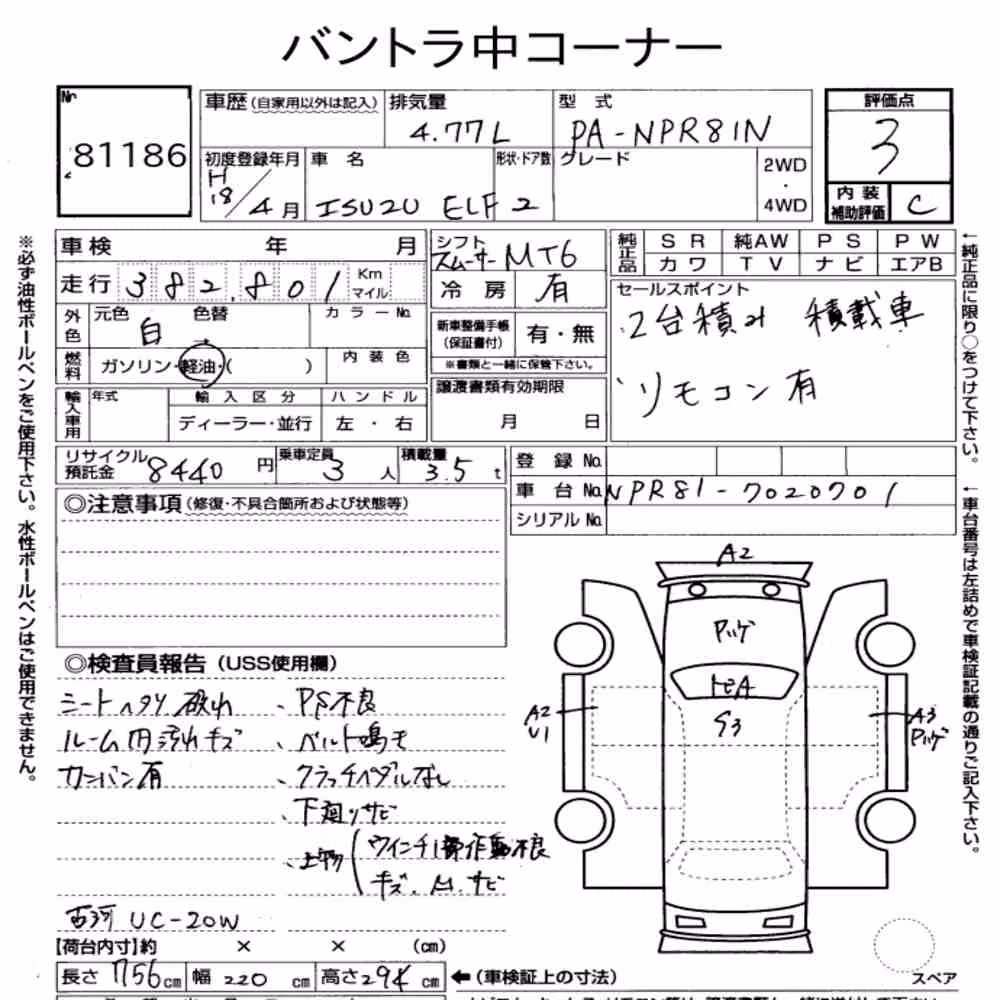 バントラ中コーナー
No. 81186
車歴 (自家用以外は記入) 排気量 4.77L 型式 PA-NPR81N
評価点 3
内装補助評価 C
初度登録年月 H18/4月 車名 ISUZU ELF 2 形状・ドア数 グレード 2WD・4WD
車検 年 月
走行 382,801 Km マイル
外色 元色 白 色替 カラーNo.
燃料 ガソリン・軽油・( ) 内装色
輸入車用 年式 輸入区分 ハンドル
ディーラー・並行 左・右
シフト スムーサー MT6
冷房 有
新車整備手帳 (保証書付) 有・無
※書類と一緒に保管下さい。
譲渡書類有効期限
月 日
純正品 SR 純AW PS PW
カワ TV ナビ エアB
セールスポイント
2台積み 積載車
リモコン有
リサイクル預託金 8440円 乗車定員 3人 積載量 3.5t
登録No.
車台No. NPR81-7020701
シリアルNo.
◎注意事項(修復・不具合箇所および状態等)
◎検査員報告(USS使用欄)
シートヘタリ破れ 、PS不良
ルーム内汚れキズ 、ベルト鳴き
カンバン有 、クラッチペダルなし
、下廻りサビ
、上物(ウインチ操作動不良
キズ、凹、サビ
古河 UC-20W
【荷台内寸】約 × × (cm)
長さ 756cm 幅 220cm 高さ 294cm ←(車検証上の寸法)
A2
トビA
S3
A2
U1
A3
スペア
※必ず油性ボールペンをご使用下さい。水性ボールペンはご使用できません。
←純正品に限り○をつけて下さい。
←車台番号は左詰めで車検証記載の通りご記入下さい。